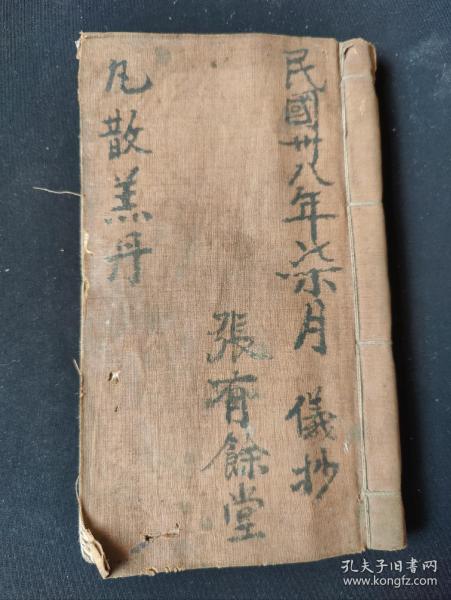 民國卅八年柒月 儀抄
張有餘堂
凡散羔丹
孔夫子旧书网
www.kongfz.com